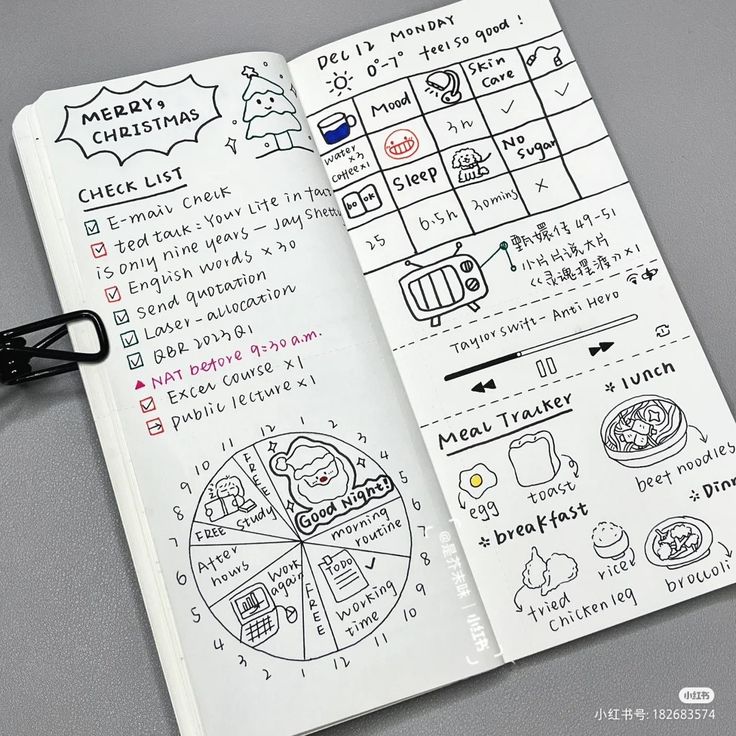 MERRY,
CHRISTMAS
CHECK LIST
E-mail check
ted talk: Your Life in fact
is only nine years — Jay Shetty
English words × 30
Send quotation
Laser-allocation
QBR 2023 Q1
NAT before 9:30 a.m.
Excel course × 1
public lecture × 1
12 1 2 3 4 5 6 7 8 9 10 11 12 1 2 3 4 5 6 7 8 9 10 11
FREE
Good Night!
morning
routine
TODO
Working
time
FREE
Work
again
After
hours
FREE
Study
DEC 12 MONDAY
0°-7° feel so good!
Mood
Skin
care
water
×3
coffee×1
3h
book
Sleep
No
Sugar
25
6.5h
30mins
×
甄嬛传 49-51
小片片说大片
《灵魂摆渡》×1
Taylor swift - Anti Hero
Meal Tracker
egg
toast
breakfast
lunch
beef noodles
Dinn
fried
chicken leg
rice
broccoli
@是芥末味 | 小红书
小红书
小红书号: 182683574